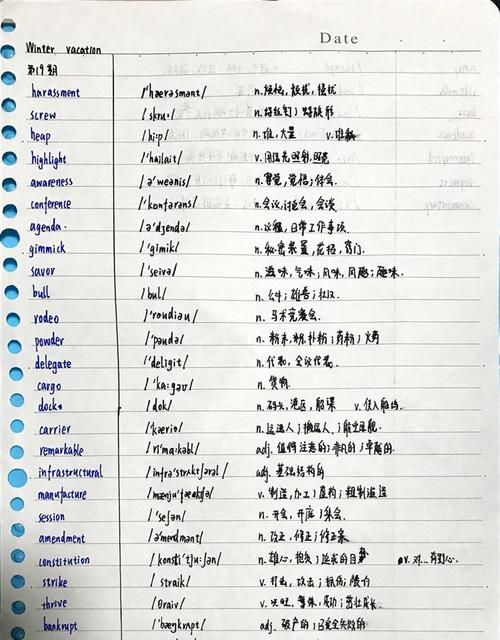 Date
Winter vacation
第19期
harassment /'hærəsmənt/ n. 烦恼, 骚扰, 侵扰
screw /skru:/ n. 螺丝钉; 螺旋形
heap /hi:p/ n. 堆, 大量 v. 堆积
highlight /'hailait/ v.
awareness /ə'weənis/ n. 察觉, 觉悟; 体会.
conference /'kɒnfərəns/ n. 会议, 讨论会, 会谈
agenda. /ə'dʒendə/ n. 议程, 日常工作事项.
gimmick /'gimik/ n. 秘密装置, 花招, 窍门.
savor /'seivə/ n. 滋味, 气味; 风味, 风趣; 趣味.
bull /bul/ n. 公牛; 雄兽;
rodeo /'roudiəu/ n. 马术竞赛会.
powder /'paudə/ n. 粉末, 粉, 扑粉; 药粉; 火药
delegate /'deligit/ n. 代表, 会议代表.
cargo /'ka:gəu/ n. 货物
dock /dɒk/ n. 码头, 港区, 船渠 v. 使入船坞.
carrier /'kæriə/ n. 运送人; 搬运人;
remarkable /ri'ma:kəbl/ adj. 值得注意的; 非凡的; 卓越的.
infrastructural /infrə'strʌktʃərəl/ adj. 基础结构的
manufacture /mænju'fæktʃə/ v. 制造, 加工; 虚构; 粗制滥造
session /'seʃən/ n. 开会, 开庭; 集会.
amendment /ə'mendmənt/ n. 改正, 修正; 修正案
constitution /kɒnsti'tju:ʃən/ n. 雄心, 抱负; 追求的目 v. 对...有野心.
strike /straik/ v. 打击, 攻击; 抓伤;
thrive /θraiv/ v. 兴旺, 繁荣, 成功; 茁壮成长.
bankrupt /'bæŋkrʌpt/ adj. 破产的; 已完全失败的